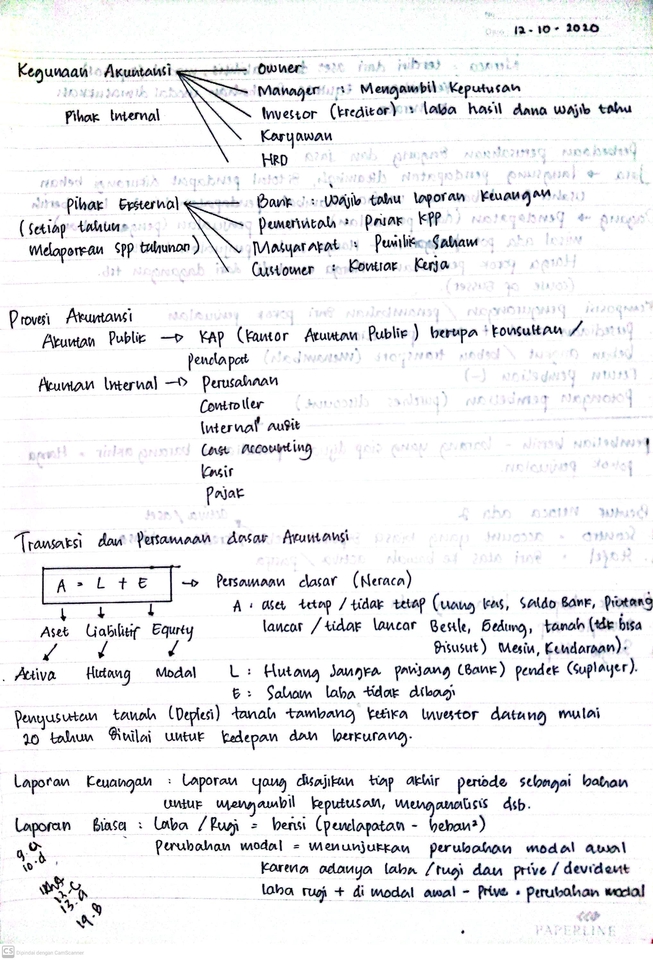 12-10-2020
Kegunaan Akuntansi Owner
Manager : Mengambil Keputusan
Pihak Internal Investor (kreditor) : laba hasil dana wajib tahu
Karyawan
HRD
Pihak Eksternal Bank : Wajib tahu laporan keuangan
(setiap tahun Pemerintah : Pajak KPP
melaporkan SPP tahunan) Masyarakat : Pemilik Saham
Customer : Kontrak Kerja
Provesi Akuntansi
Akuntan Publik → KAP (Kantor Akuntan Publik) berupa konsultan /
pendapat
Akuntan Internal → Perusahaan
Controller
Internal audit
Cost accounting
Kasir
Pajak
Transaksi dan Persamaan dasar Akuntansi
A = L + E → Persamaan dasar (Neraca)
A : aset tetap / tidak tetap (uang kas, Saldo Bank, Piutang
Aset Liabilitif Equity lancar / tidak lancar Gedung, tanah (tdk bisa
disusut) Mesin, Kendaraan).
Activa Hutang Modal L : Hutang Jangka panjang (Bank) pendek (suplayer).
E : Saham laba tidak dibagi
Penyusutan tanah (Deplesi) tanah tambang ketika Investor datang mulai
20 tahun dinilai untuk kedepan dan berkurang.
Laporan Keuangan : Laporan yang disajikan tiap akhir periode sebagai bahan
untuk mengambil keputusan, menganalisis dsb.
Laporan Biasa : Laba / Rugi = berisi (pendapatan - beban²)
Perubahan modal = menunjukkan perubahan modal awal
karena adanya laba / rugi dan prive / devident
laba rugi + di modal awal - Prive = perubahan modal
9. a
10. d
12. C
13. a
14. B
PAPERLINE
CS Dipindai dengan CamScanner